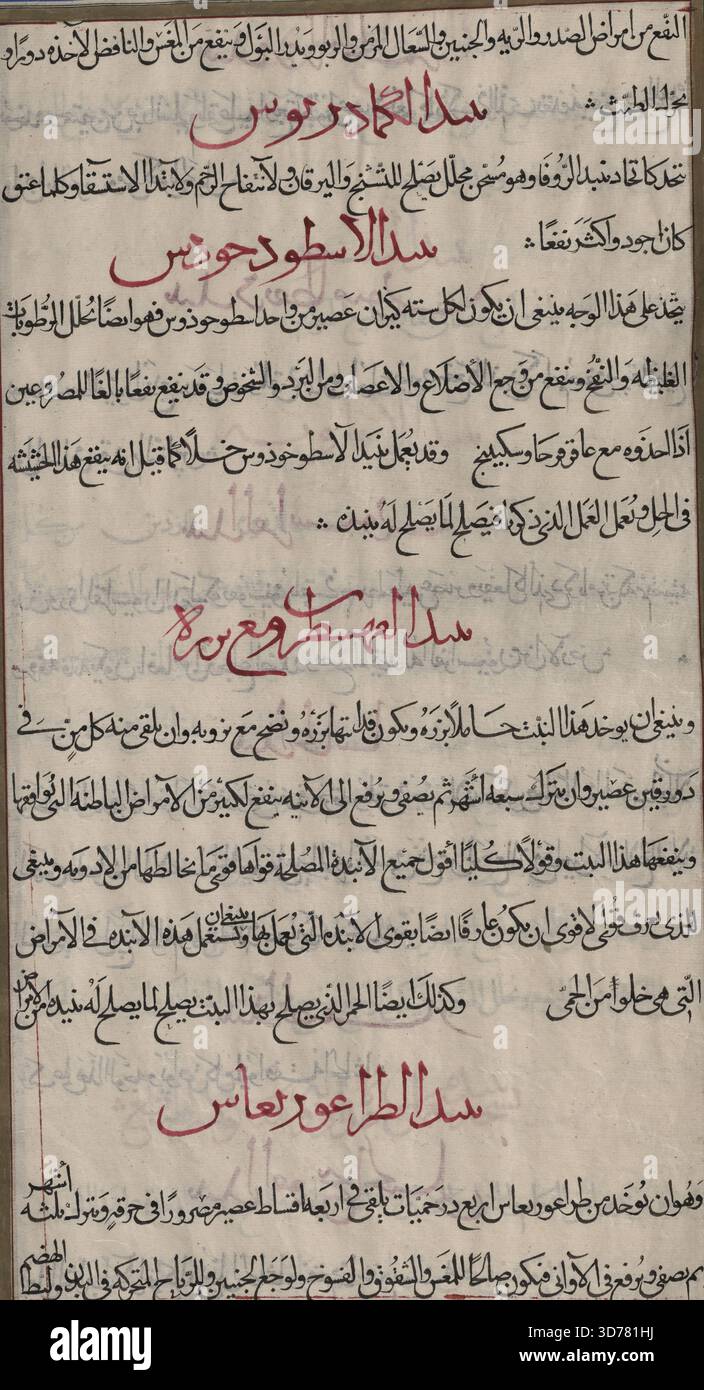 النفع من امراض الصدر والريه والجنبين والسعال المزمن والربو ويدر البول وينفع من المغس والنافض الآخذه دورا و
الطمث
نبيذ الكمادريوس
يتخذ كاتخاذ نبيذ الزوفا وهو مسخن محلل يصلح للتشنج واليرقان ولانتفاخ الرحم ولابتدا الاستسقا وكلما عتق
كان اجود واكثر نفعًا
نبيذ الاسطوخودس
يتخذ على هذا الوجه ينبغي ان يكون لكل سته كيزان عصير من واحد اسطوخوذوس فهو ايضًا يحلل الرطوبات
الغليظه والنفخ وينفع من وجع الأضلاع والاعصاب ومن البرد والشخوص وقد ينفع نفعًا بالغًا للمصروعين
اذا اخذوه مع عاقرقرحا وسكبينج وقد يعمل بنبيذ الاسطوخوذوس خلا كما قيل انه ينقع هذا الحشيشه
في الخل ويعمل العمل الذي ذكرناه فيصلح لما يصلح له نبيذه
نبيذ مع بزره
وينبغي ان يوخذ هذا النبت حاملا بزره ويكون قد انتها بزره ونضج مع بزوبه وان يلقى منه كل منٍ في
دورقين عصير وان يترك سبعه أشهر ثم يصفى ويرفع الى الآنيه ينفع لكثير من الامراض الباطنه التي توافقها
وينفعها هذا النبت وقولًا كليًا أقول جميع الأنبذة المصلحة قواها قوى ما يخالطها من الادويه وينبغي
للذي يعرف قوى لا قوى ان يكون عارفًا ايضًا بقوى الانبذه التي يعمل بها وينبغي ان تستعمل هذه الانبذه في الأمراض
التي هي خلوا من الحمى وكذلك ايضًا الخمر الذي يصلح بهذا النبت يصلح لما يصلح له نبيذه من الامراض
نبيذ الطراغوريغانس
وهو ان يوخذ من طراغوريغانس اربع درخميات يلقى في اربعه اقساط عصير مصرورًا في خرقه ويترك ثلثه أشهر
ثم يصفى ويرفع في الآواني فيكون صالحًا للمغس والشقوق والفسوخ ولوجع الجنبين وللرياح المتحركه في البدن ولبطا الهضم
alamy
2D781HJ
www.alamy.com